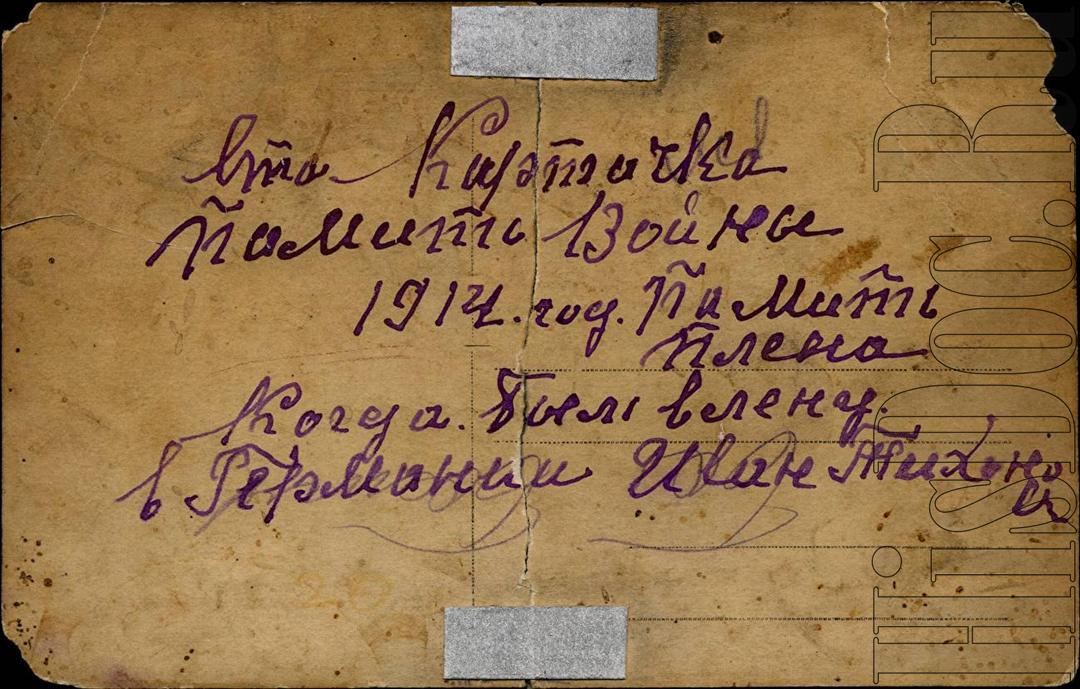 Ета Карточка
Памить Войны
1914. год. Памить
Плена
Когда. Был влену.
в Германии Иван Тихоно
HISDOC.RU